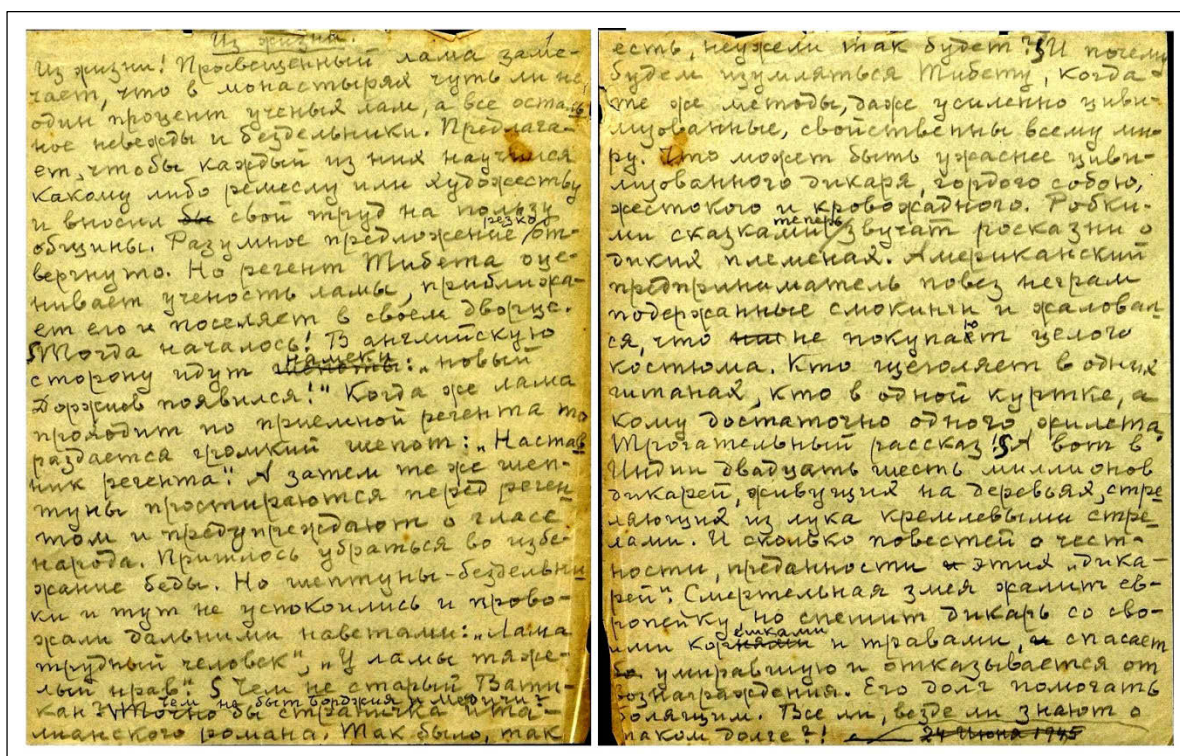 Из жизни.
Из жизни! Просвещенный лама заме-
чает, что в монастырях чуть ли не
один процент ученых лам, а все осталь-
ное невежды и бездельники. Предлага-
ет, чтобы каждый из них научился
какому либо ремеслу или художеству
и вносил бы свой труд на пользу
общины. Разумное предложение резко от-
вергнуто. Но регент Тибета оце-
нивает ученость ламы, приближа-
ет его и поселяет в своем дворце.
§Тогда началось! В английскую
сторону идут намеки: „новый
Доржиев появился!" Когда же лама
проходит по приемной регента то
раздается громкий шепот: „Настав
ник регента". А затем те же шеп-
туны простираются перед реген-
том и предупреждают о гласе
народа. Пришлось убраться во избе-
жание беды. Но шептуны-бездельни-
ки и тут не успокоились и прово-
жали дальними наветами: „Лама
трудный человек", „У ламы тяже-
лый нрав". § Чем не старый Вати-
кан? Чем не быт Борджия и Медичи?
Точно бы страничка ита-
лианского романа. Так было, так
есть, неужели так будет? §И почему
будем изумляться Тибету, когда
те же методы, даже усиленно циви-
лизованные, свойственны всему ми-
ру. Что может быть ужаснее циви-
лизованного дикаря, гордого собою,
жестокого и кровожадного. Робки-
ми сказками теперь звучат росказни о
диких племенах. Американский
предприниматель повез неграм
подержанные смокинги и жаловал-
ся, что не покупают целого
костюма. Кто щеголяет в одних
штанах, кто в одной куртке, а
кому достаточно одного жилета.
Трогательный рассказ! §А вот в
Индии двадцать шесть миллионов
дикарей, живущих на деревьях, стре-
ляющих из лука кремлевыми стре-
лами. И сколько повестей о чест-
ности, преданности этих „дика-
рей". Смертельная змея жалит ев-
ропейку, но спешит дикарь со сво-
ими корешками и травами, спасает
умиравшую и отказывается от
вознаграждения. Его долг помогать
болящим. Все ли, везде ли знают о
таком долге?! 24 Июня 1945